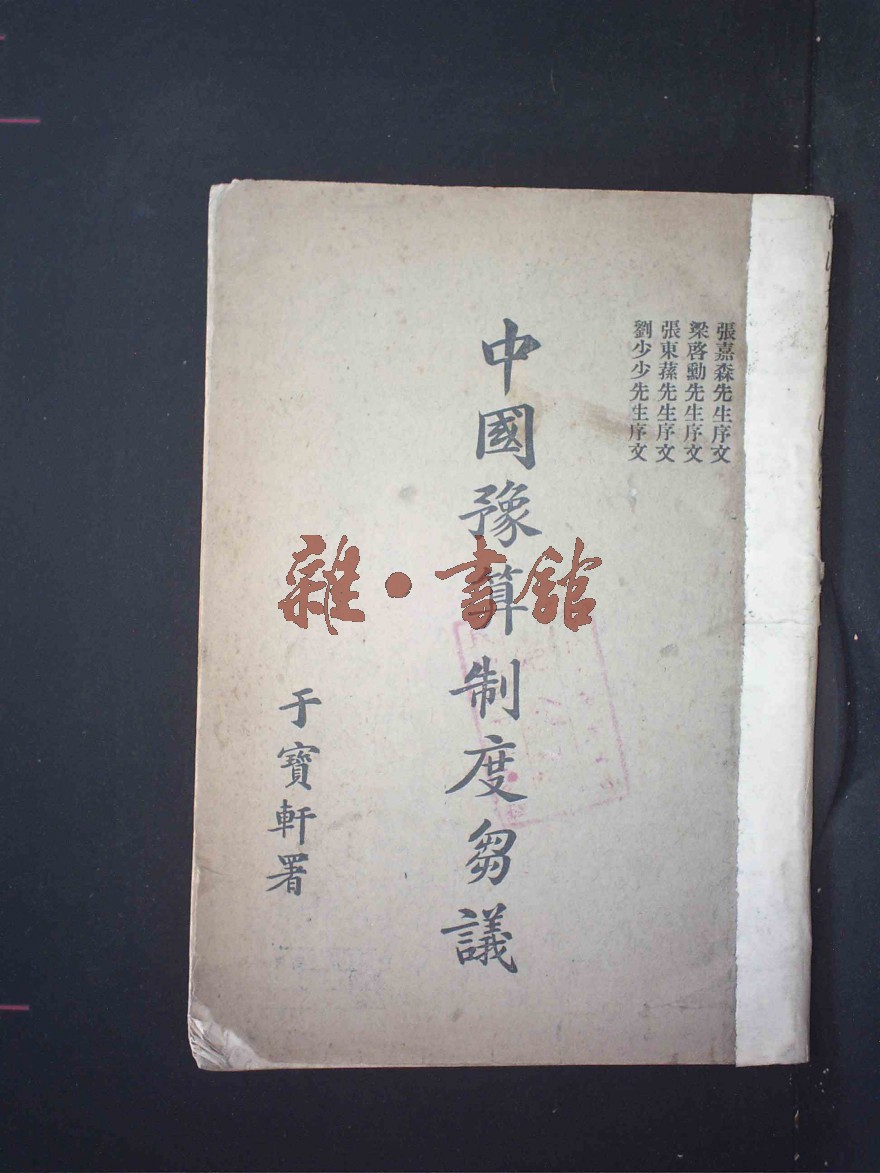 張嘉森先生序文
梁啓勳先生序文
張東蓀先生序文
劉少少先生序文
中國豫算制度芻議
于寶軒署
雜·書館